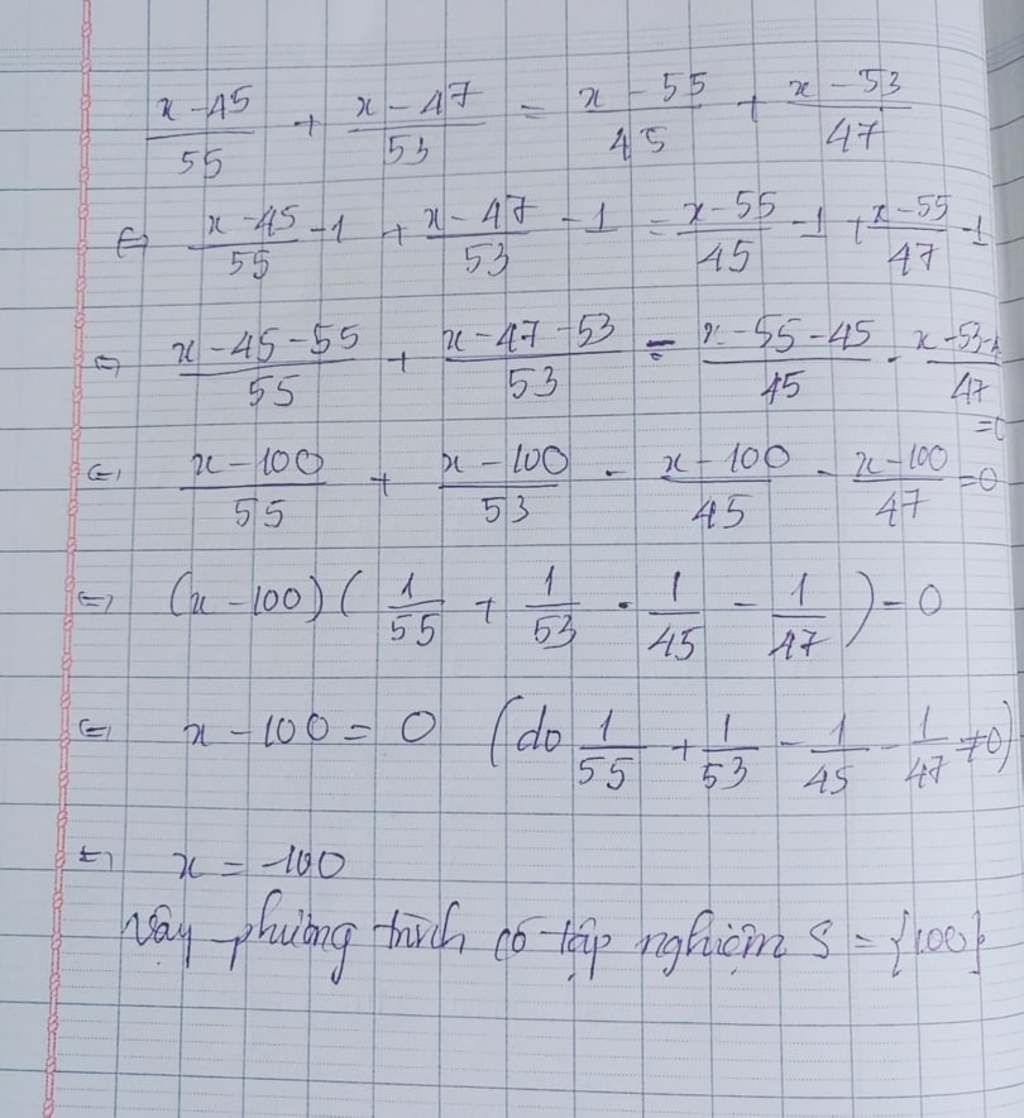 x - 45/55 + x - 47/53 = x - 55/45 + x - 53/47
⇔ x - 45/55 - 1 + x - 47/53 - 1 = x - 55/45 - 1 + x - 55/47 - 1
⇔ x - 45 - 55/55 + x - 47 - 53/53 = x - 55 - 45/45 - x - 53 -/47 = 0
⇔ x - 100/55 + x - 100/53 - x - 100/45 - x - 100/47 = 0
⇔ (x - 100) ( 1/55 + 1/53 - 1/45 - 1/47 ) - 0
⇔ x - 100 = 0 (do 1/55 + 1/53 - 1/45 - 1/47 ≠ 0)
⇔ x = -100
Vậy phương trình có tập nghiệm S = {100}